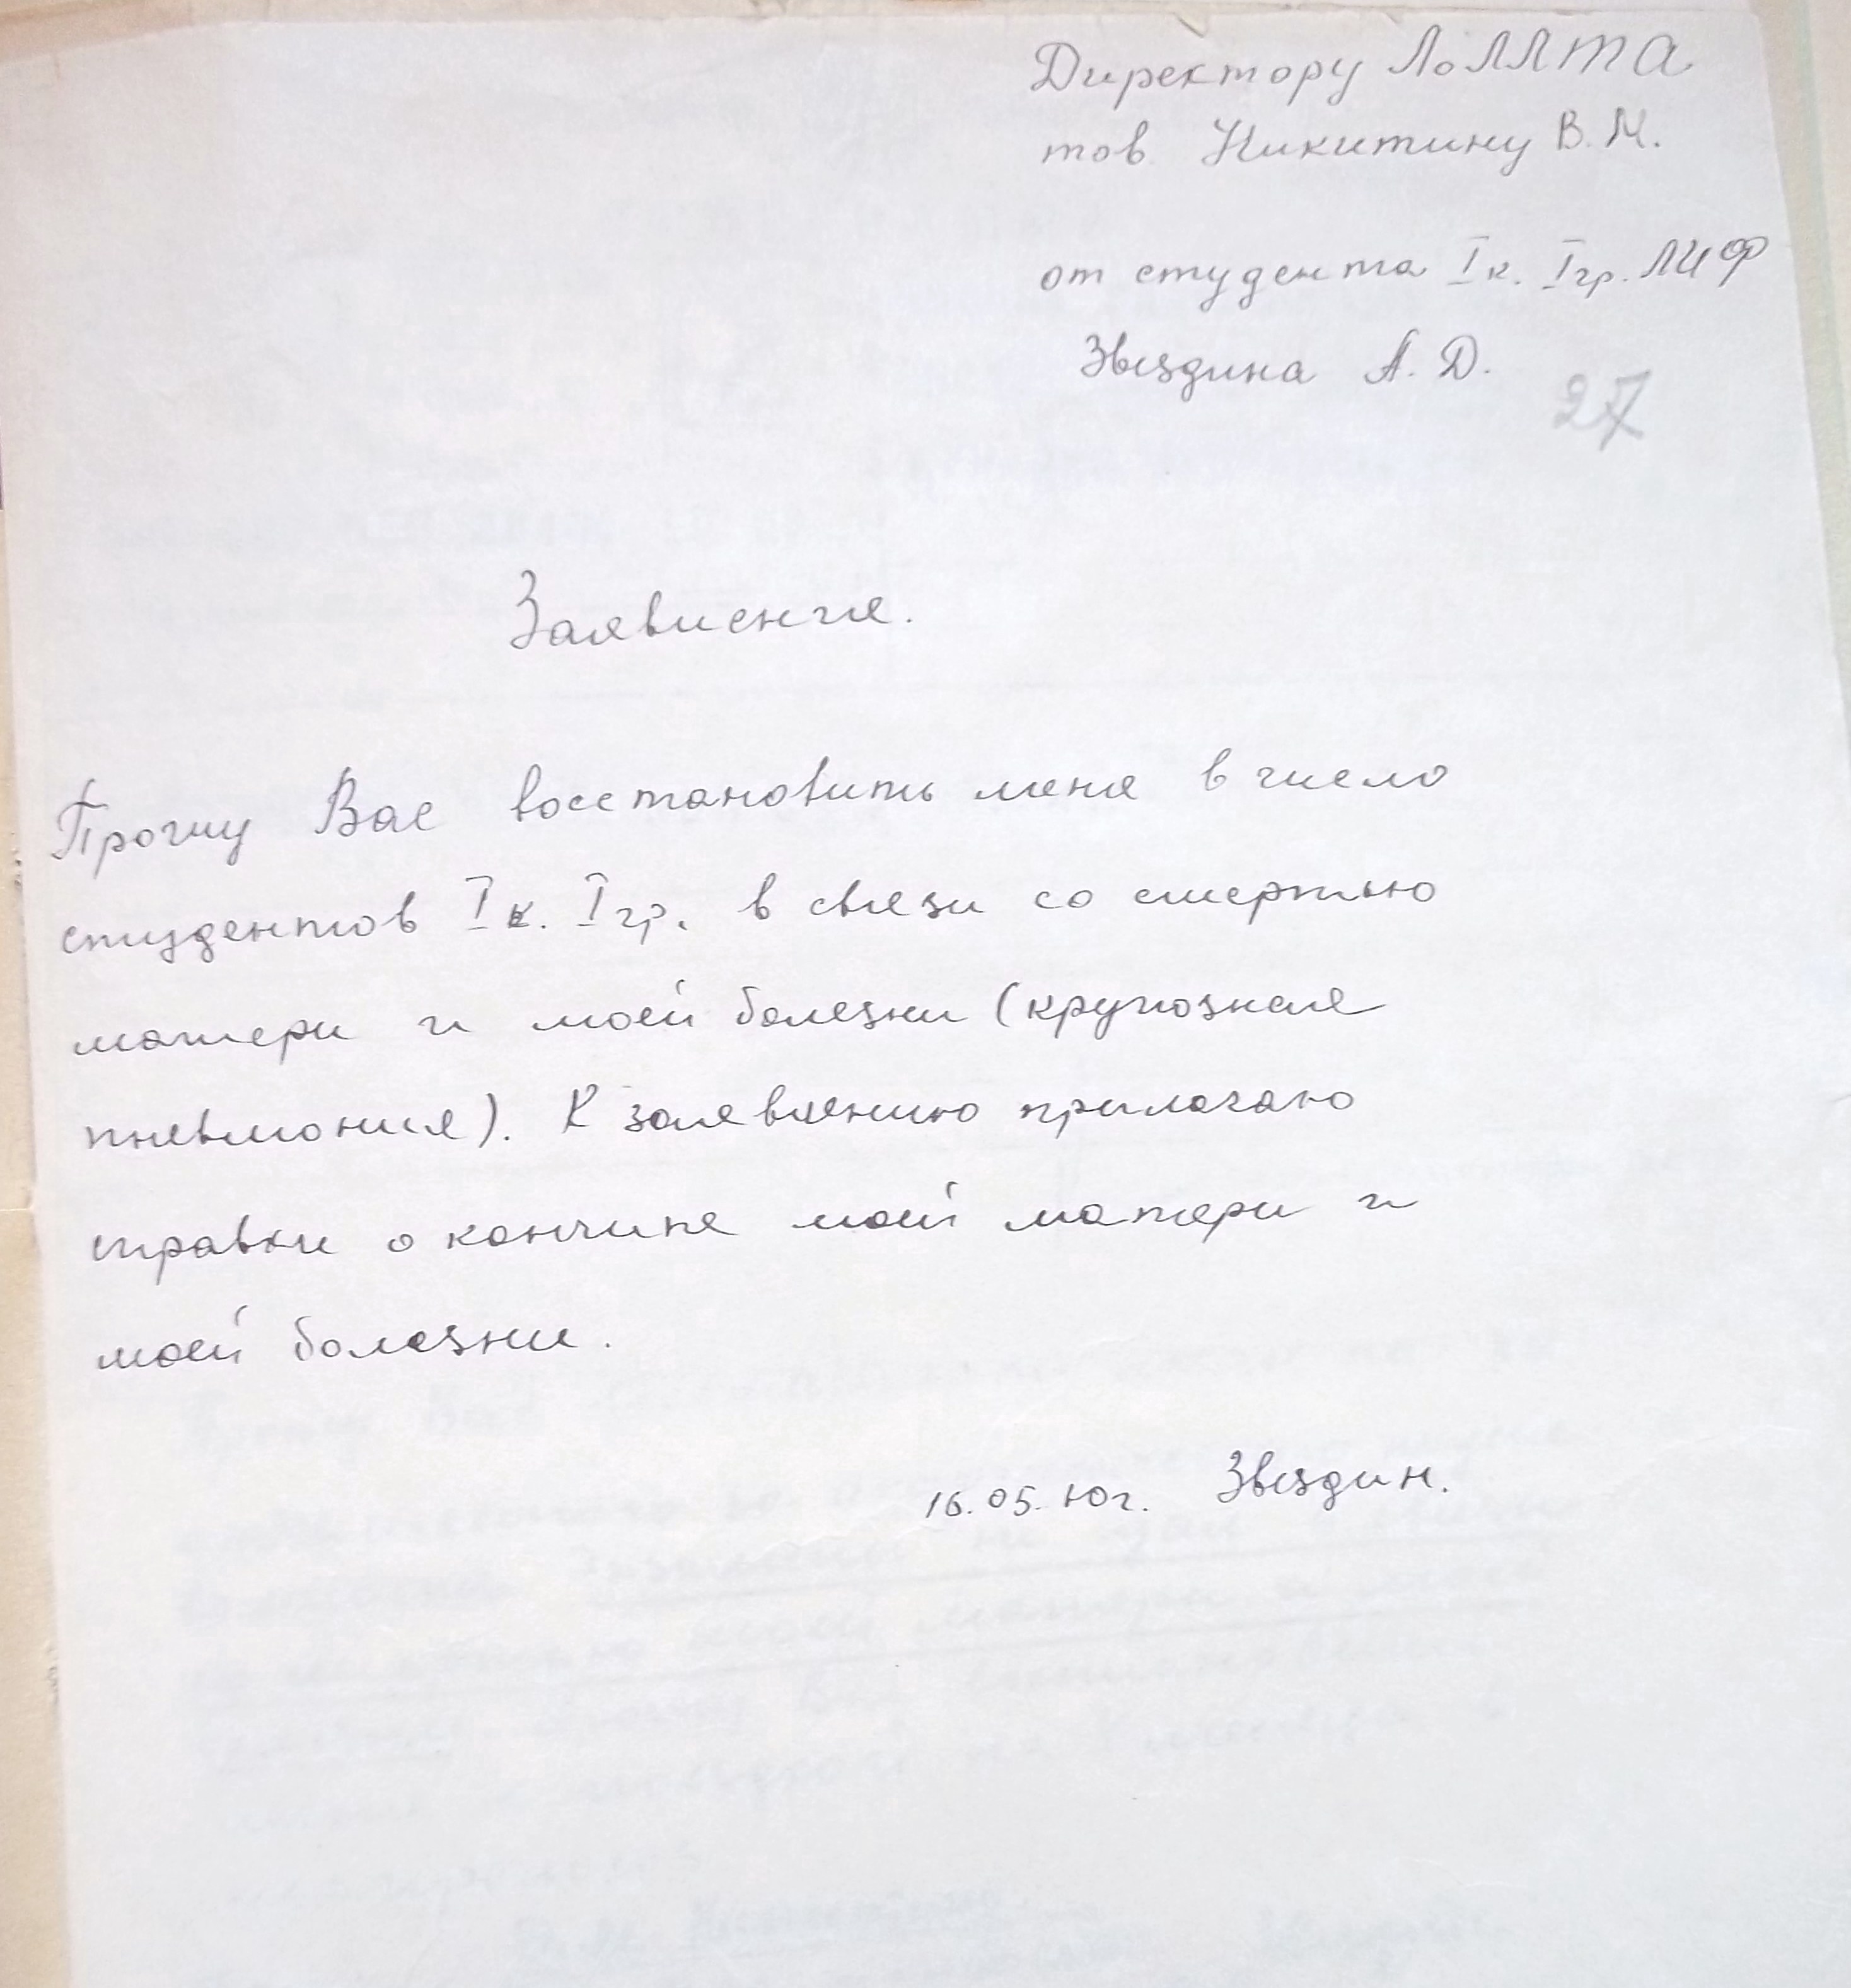 Директору ЛоЛЛТА
тов. Никитину В.М.
от студента I к. I гр. ЛИФ
Звездина А.Д.
27
Заявление.
Прошу Вас восстановить меня в число
студентов I к. I гр. в связи со смертью
матери и моей болезни (крупозная
пневмония). К заявлению прилагаю
справки о кончине моей матери и
моей болезни.
16.05. г. Звездин.